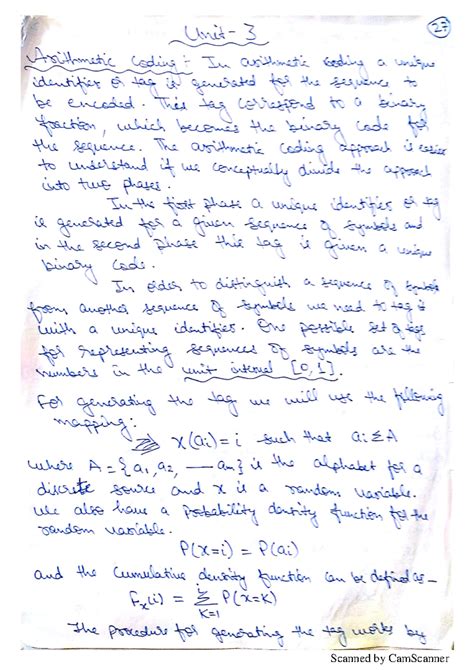 Unit-3
27
Arithmetic Coding:- In arithmetic coding a unique
identifier or tag is generated for the sequence to
be encoded. This tag correspond to a binary
fraction, which becomes the binary code for
the sequence. The arithmetic coding approach is easier
to understand if we conceptually divide the approach
into two phases.
In the first phase a unique identifier or tag
is generated for a given sequence of symbols and
in the second phase this tag is given a unique
binary code.
In order to distinguish a sequence of symbols
from another sequence of symbols we need to tag it
with a unique identifier. One possible set of tags
for representing sequences of symbols are the
numbers in the unit interval [0,1].
For generating the tag we will use the following
mapping:
x(ai) = i such that ai ∑ A
where A = {a1, a2, — an} is the alphabet for a
discrete source and x is a random variable.
We also have a probability density function for the
random variable.
P(x=i) = P(ai)
and the cumulative density function can be defined as—
Fx(i) = ∑ P(x=K)
K=1
The procedure for generating the tag works by
Scanned by CamScanner